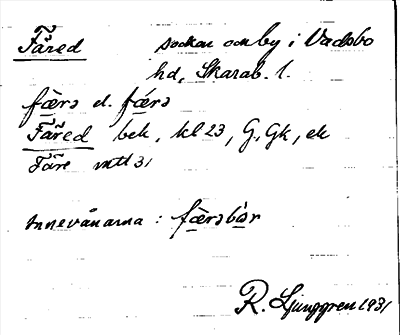 Färed socken och by i Vadsbo
hd, Skarab. l.
fœ̀rə el. fœ́rə
Färed bek, kl 23, G, Gk, ek
Färe mtl 31
Innevånarna : fœ̀rəbor
R. Ljunggren 1931